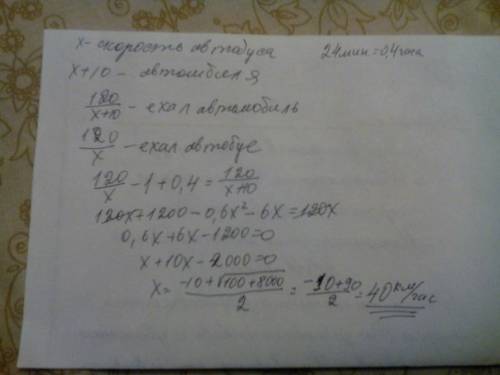 x - скорость автобуса 24 мин = 0,4 часа
x+10 - автомобиля
120/x+10 - ехал автомобиль
120/x - ехал автобус
120/x - 1 + 0,4 = 120/x+10
120x+1200-0,6x²-6x=120x
0,6x+6x-1200=0
x+10x-2000=0
x = -10+√100+8000/2 = -10+90/2 = 40 км/час